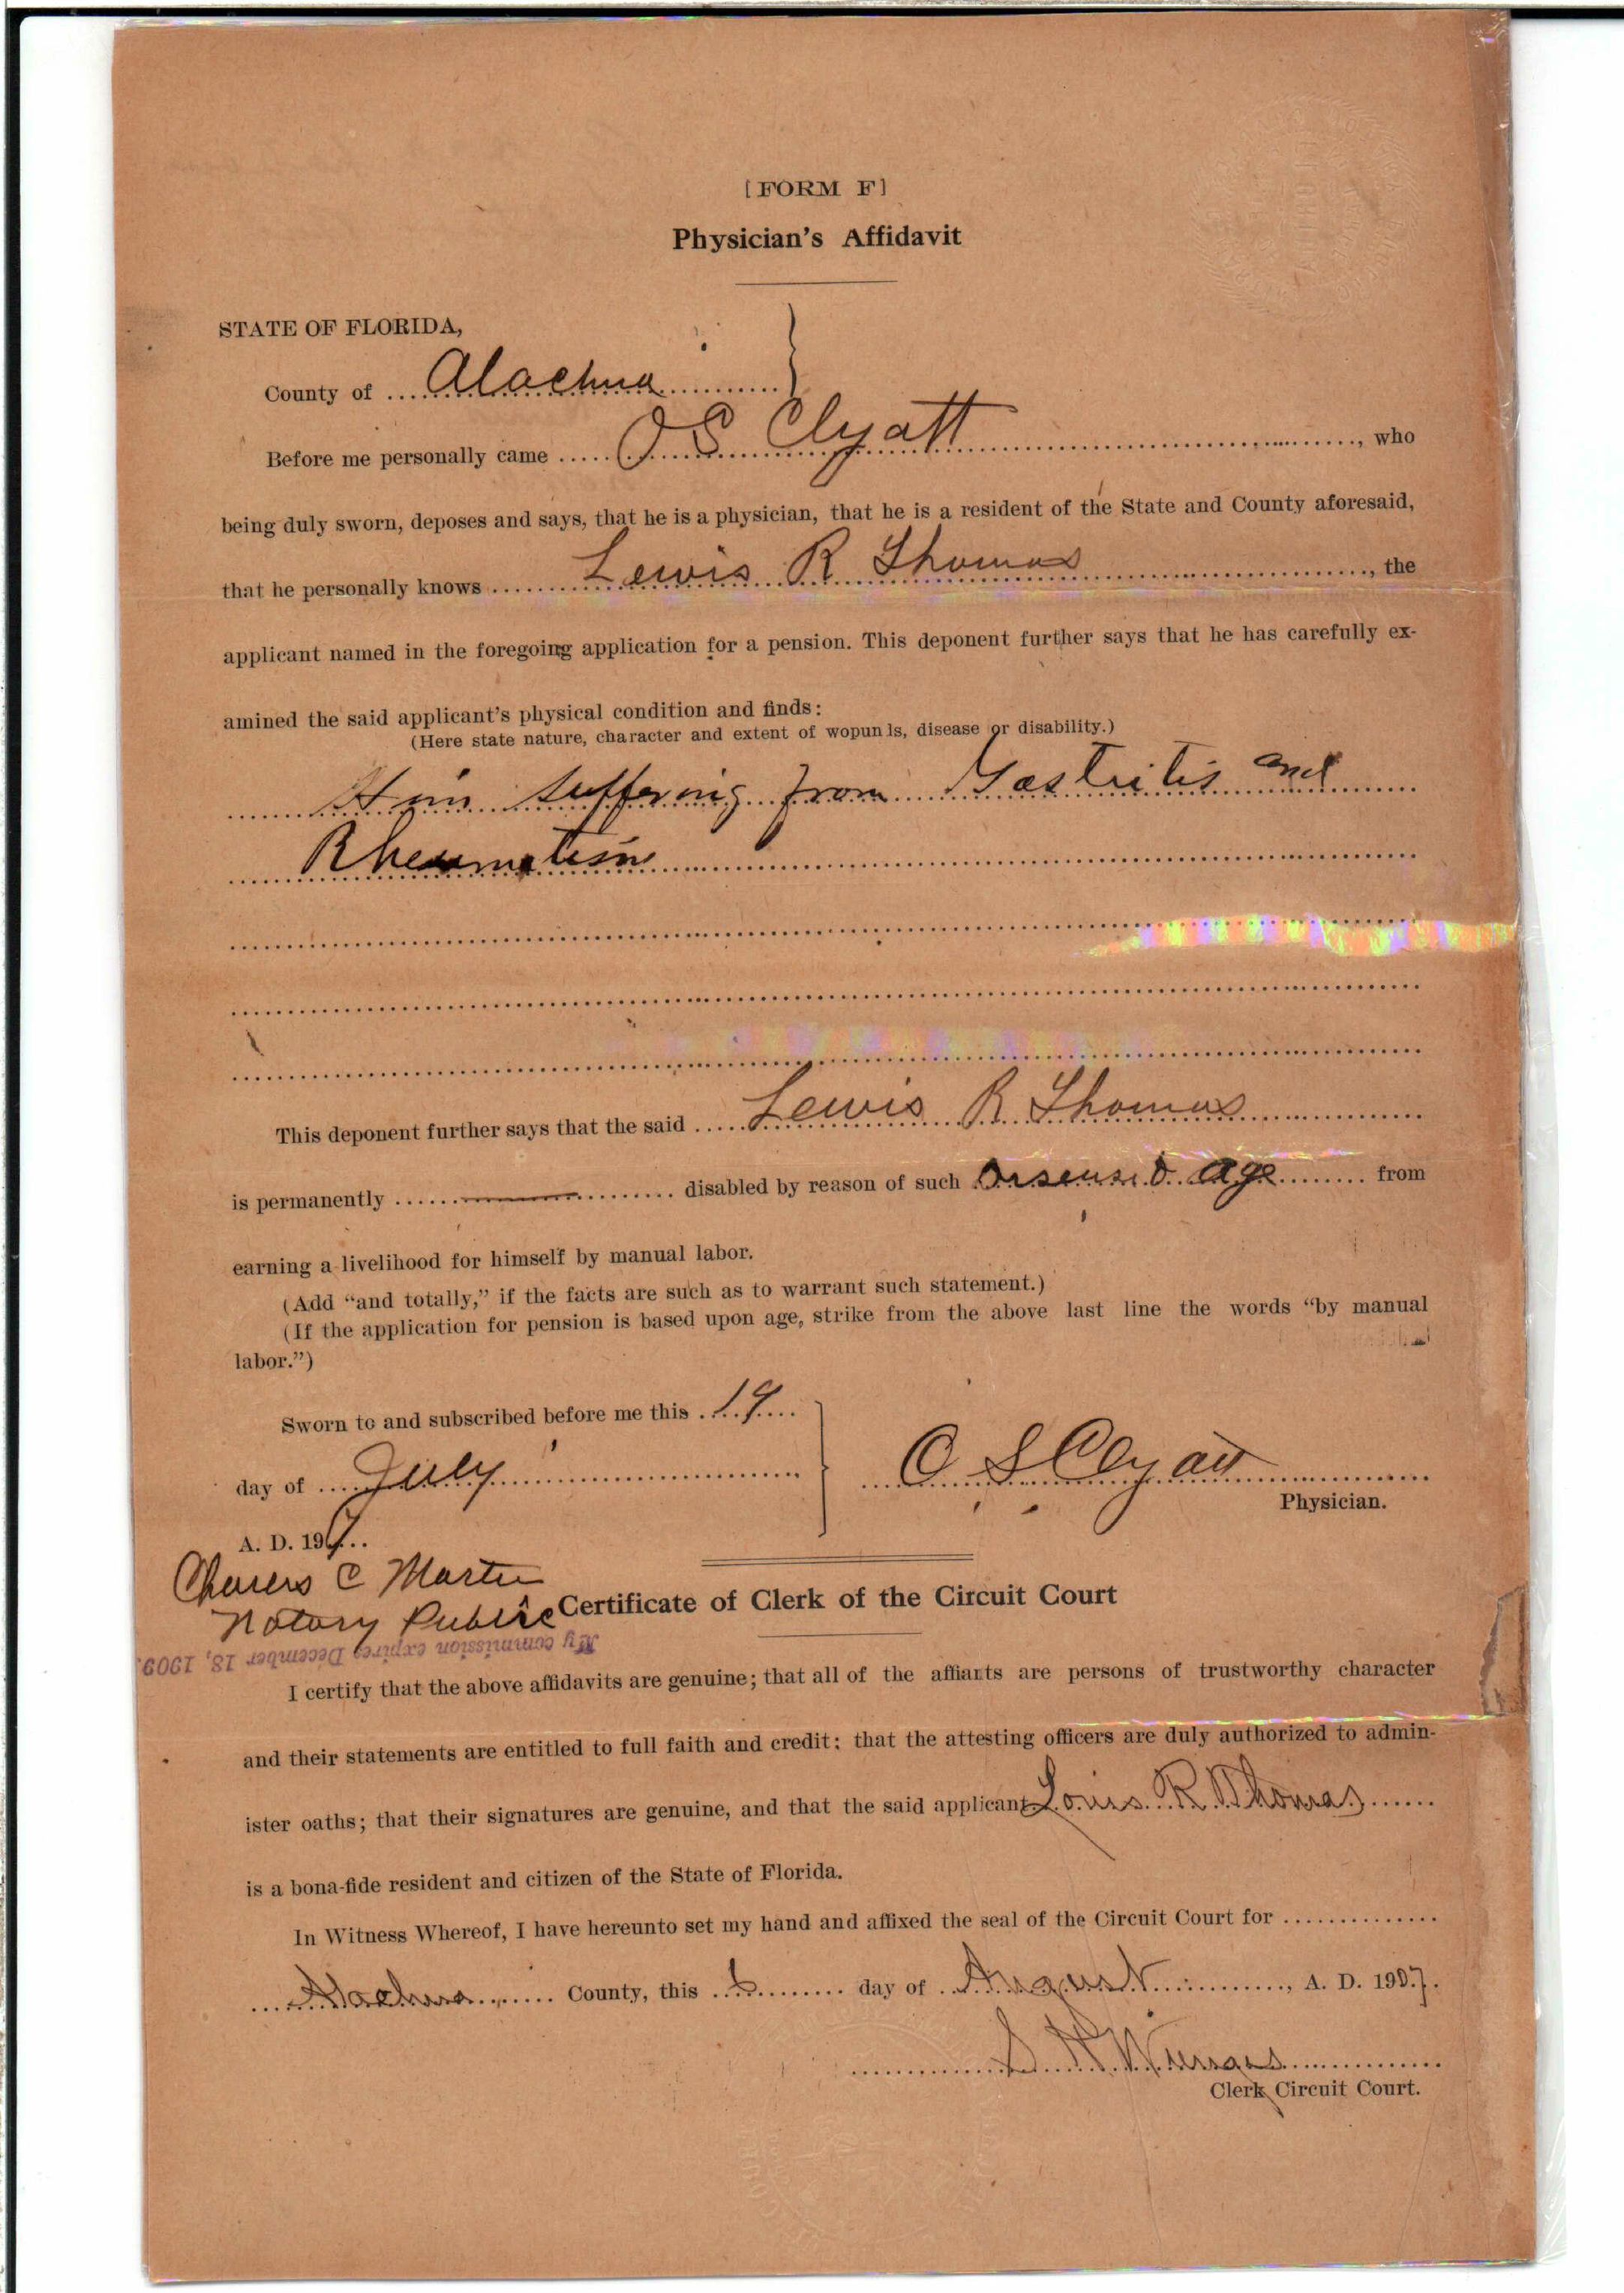 [FORM F]
Physician's Affidavit
STATE OF FLORIDA,
County of Alachua
Before me personally came O S Clyatt, who
being duly sworn, deposes and says, that he is a physician, that he is a resident of the State and County aforesaid,
that he personally knows Lewis R Thomas, the
applicant named in the foregoing application for a pension. This deponent further says that he has carefully ex-
amined the said applicant's physical condition and finds:
(Here state nature, character and extent of wopunls, disease or disability.)
Him suffering from Gastritis and
Rheumatism
This deponent further says that the said Lewis R Thomas
is permanently disabled by reason of such age from
earning a livelihood for himself by manual labor.
(Add "and totally," if the facts are such as to warrant such statement.)
(If the application for pension is based upon age, strike from the above last line the words "by manual
labor.")
Sworn to and subscribed before me this 19
day of July
O S Clyatt
Physician.
A. D. 197
C Martin
Notary Public
My commission expires December 18, 1909.
Certificate of Clerk of the Circuit Court
I certify that the above affidavits are genuine; that all of the affiants are persons of trustworthy character
and their statements are entitled to full faith and credit: that the attesting officers are duly authorized to admin-
ister oaths; that their signatures are genuine, and that the said applicant Louis R Thomas
is a bona-fide resident and citizen of the State of Florida.
In Witness Whereof, I have hereunto set my hand and affixed the seal of the Circuit Court for
Alachua County, this 6 day of August, A. D. 1907.
S H Wienges
Clerk Circuit Court.